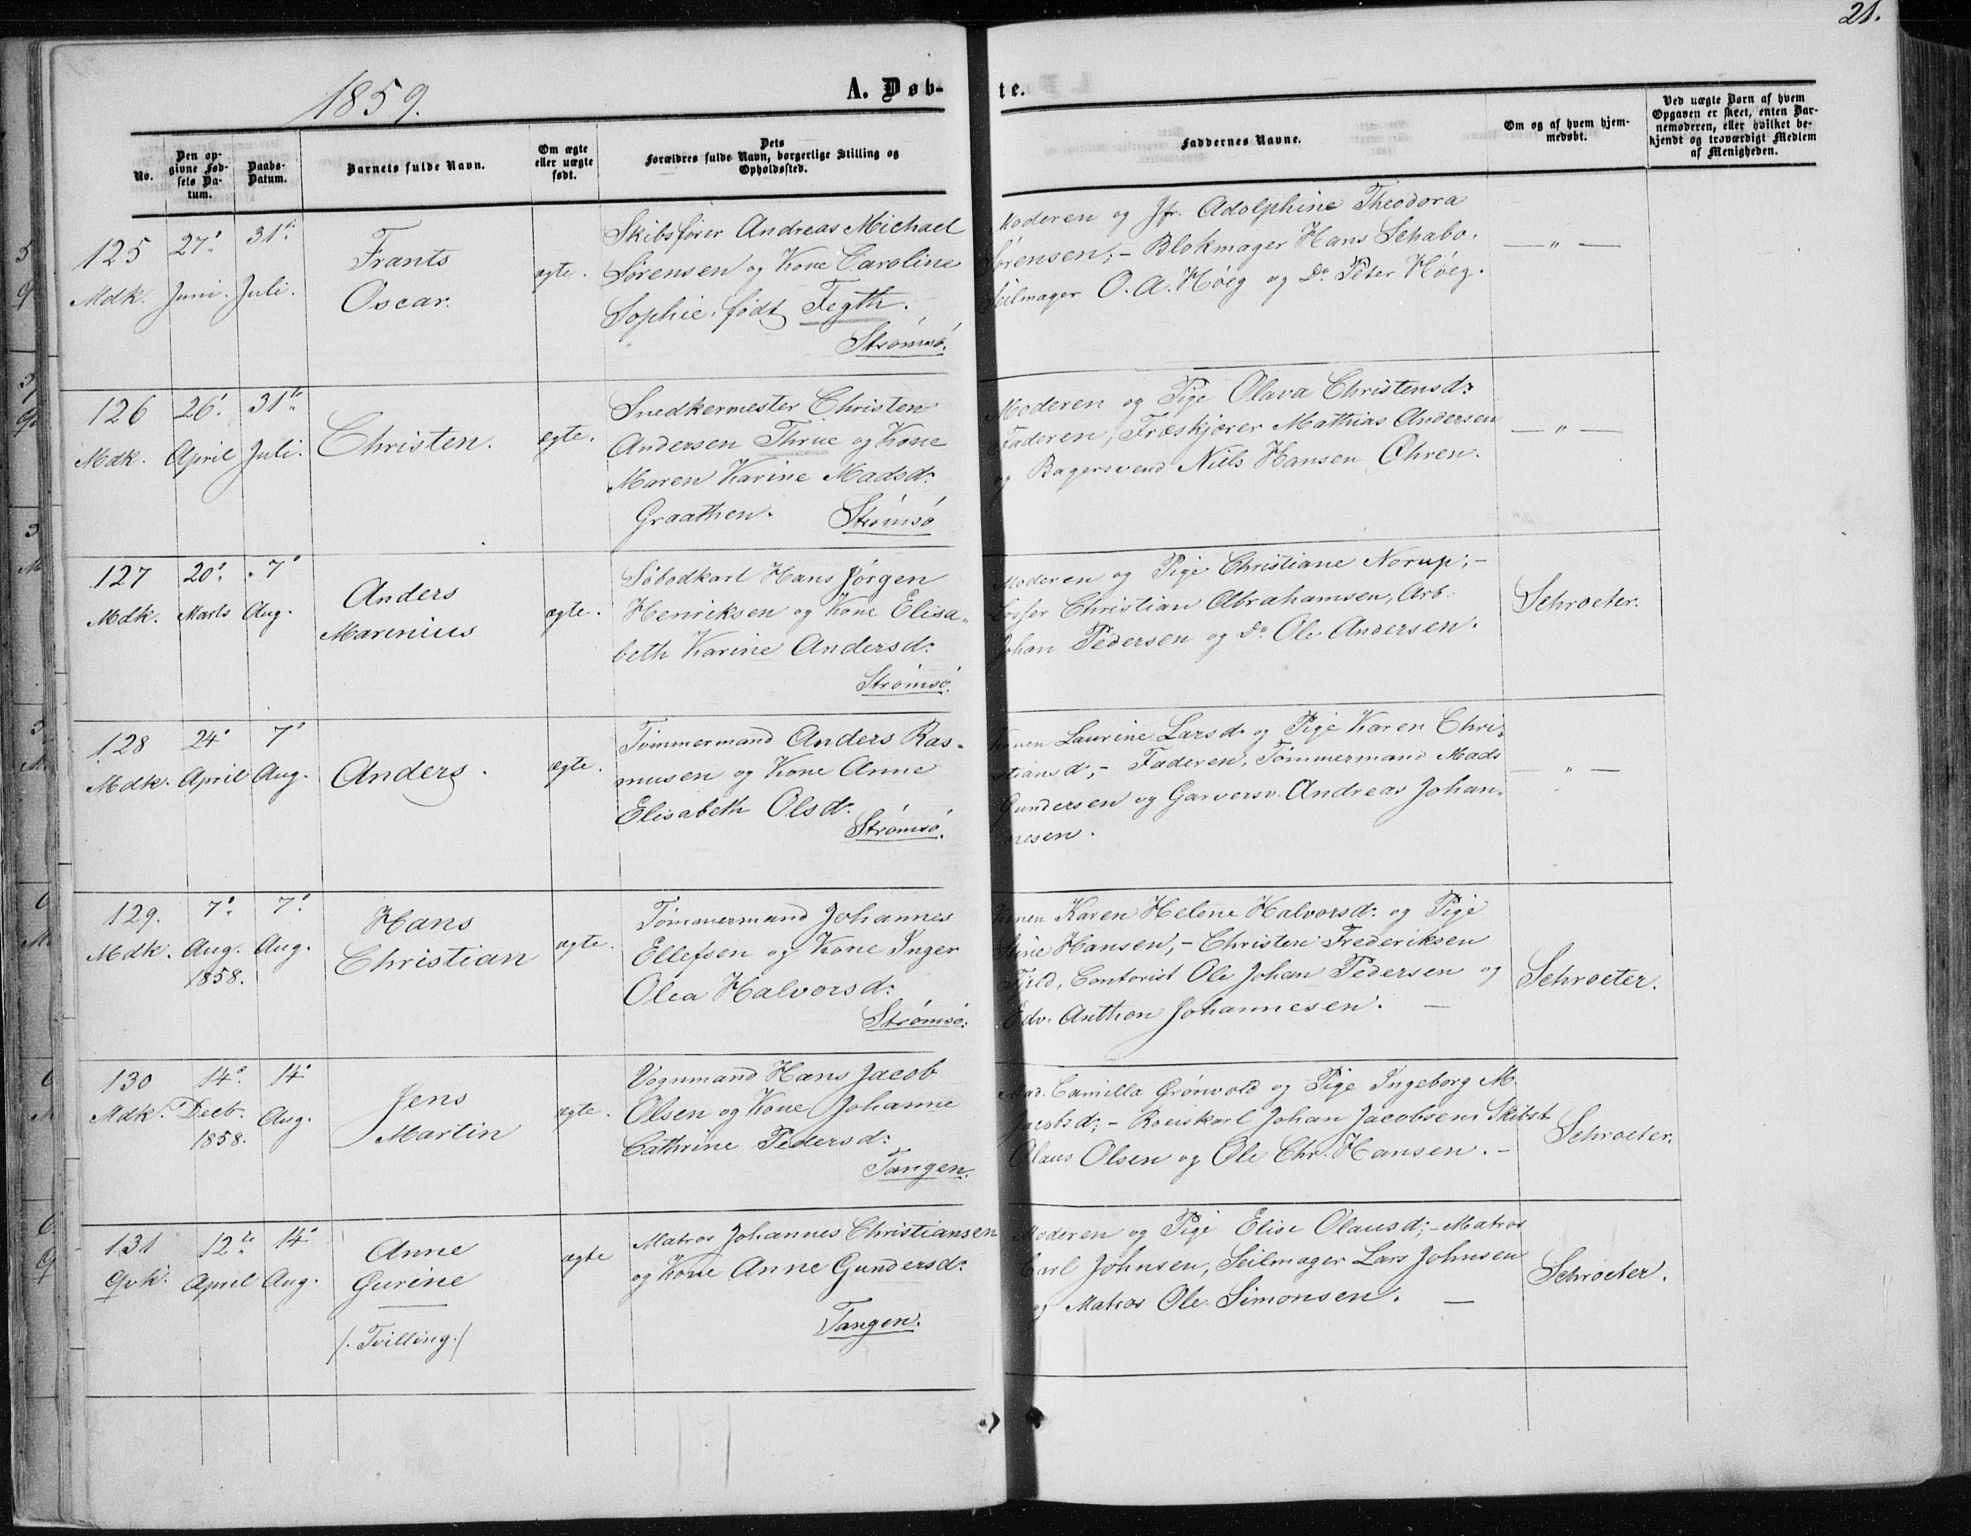 21.
1859.
A. Døb-
te.
No.
Den op-
givne Fød-
sels Da-
tum.
Daabs-
Datum.
Barnets fulde Navn.
Om ægte
eller uægte
født.
Dets
Forældres fulde Navn, borgerlige Stilling og
Opholdssted.
Faddernes Navne.
Om og af hvem hjem-
medøbt.
Ved uægte Børn af hvem
Opgaven er skeet, enten Bar-
nemoderen, eller hvilket be-
kjendt og troværdigt Medlem
af Menigheden.
125
Mdk.
27de
Juni.
31te
Juli.
Frants
Oscar.
ægte.
Skibsfører Andreas Michael
Sørensen og Kone Caroline
Sophie, født Fegth.
Strømsø.
Moderen og Jfr. Adolphine Theodora
Sørensen; - Blokmager Hans Schabo.
Seilmager O. A. Høeg og Do Peter Høeg.
— „ —
126
Mdk.
26.
April
31te
Juli.
Christen.
ægte.
Snedkermester Christen
Andersen Thrue og Kone
Maren Karine Madsd:
Graathen. Strømsø
Moderen og Pige Olava Christensd:
Faderen, Fræskjører Mathias Andersen
og Bagersvend Niels Hansen Øhren.
— „ —
127
Mdk.
20de
Marts
7de
Aug.
Anders
Marinius
ægte.
Søbodkarl Hans Jørgen
Henriksen og Kone Elisa„
beth Karine Andersd:
Strømsø.
Moderen og Pige Christiane Norup; -
Christian Abrahamsen, Arb:
Johan Pedersen og Do Ole Andersen.
Schroeter.
128
Mdk.
24de
April
7de
Aug.
Anders.
ægte.
Tømmermand Anders Ras-
musen og Kone Anne
Elisabeth Olsd:
Strømsø.
Konen Laurine Larsd: og Pige Karen Chri-
stiansd; - Faderen, Tømmermand Mads
Gundersen og Garversv. Andreas Johan-
nesen.
— „ —
129.
Mdk.
7de
Aug.
1858.
7de
Aug.
Hans
Christian
ægte.
Tømmermand Johannes
Ellefsen og Kone Inger
Olea Halvorsd:
Strømsø.
Konen Karen Helene Halvorsd: og Pige
Hansen, - Christen Frederiksen
Contorist Ole Johan Pedersen og
Edv. Anthon Johannesen. —
Schroeter.
130
Mdk.
14de
Decb.
1858.
14de
Aug.
Jens
Martin
ægte.
Vognmand Hans Jacob
Olsen og Kone Johanne
Cathrine Pedersd:
Tangen.
Mad. Camilla Grønvold og Pige Ingeborg M.
Jacobsd; - Roerskarl Johan Jacobsen, Skibst.
Olaus Olsen og Ole Chr. Hansen. -
Schroeter.
131
Qvk.
12te
April
14de
Aug.
Anne
Gurine
/: Tvilling :/
ægte
Matros Johannes Christiansen
og Kone Anne Gundersd:
Tangen.
Moderen og Pige Elise Olausd; - Matros
Carl Johnsen, Seilmager Lars Johnsen
og Matros Ole Simonsen. —
Schroeter.